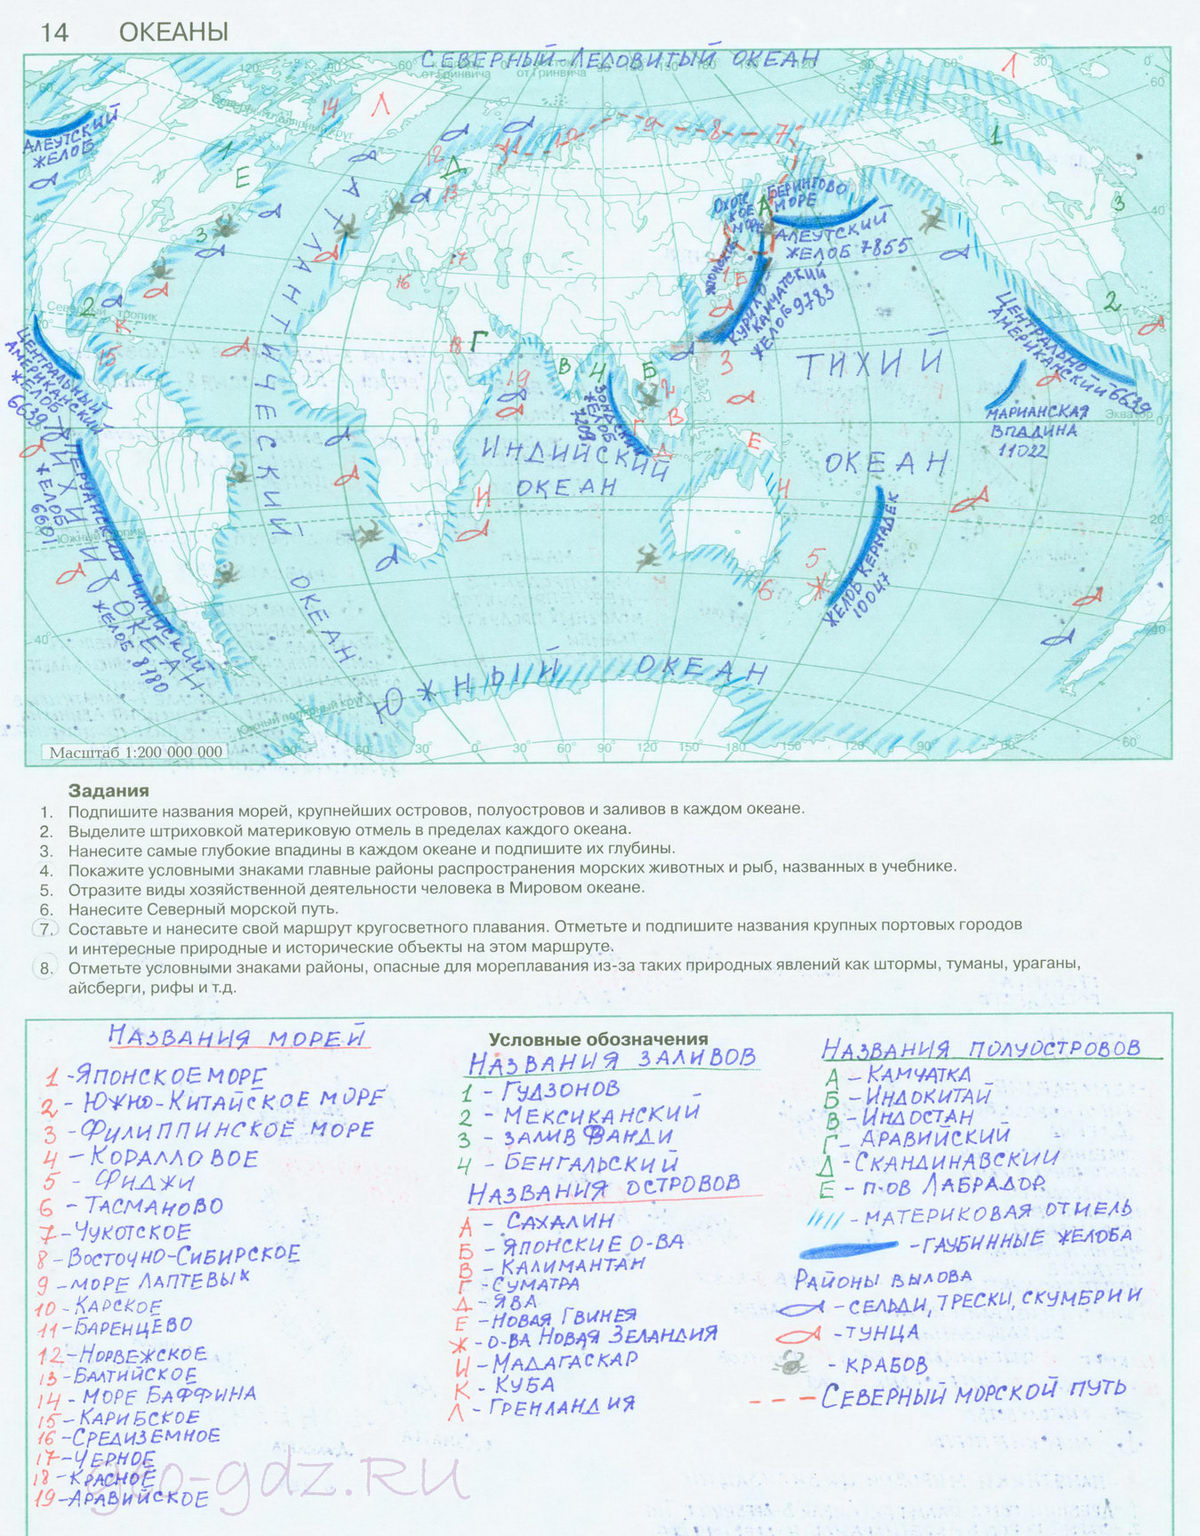 14 ОКЕАНЫ
СЕВЕРНЫЙ ЛЕДОВИТЫЙ ОКЕАН
от Гринвича
от Гринвича
АЛЕУТСКИЙ
ЖЕЛОБ
ОХОТС
КОЕ
МОРЕ
БЕРИНГОВО
МОРЕ
АЛЕУТСКИЙ
ЖЕЛОБ 7855
ЯПОНСКОЕ
КУРИЛО-
КАМЧАТСКИЙ
ЖЕЛОБ 9783
АТЛАНТИЧЕСКИЙ
ОКЕАН
ЦЕНТРАЛЬНЫЙ
АМЕРИКАНСКИЙ
ЖЕЛОБ
6639
ТИХИЙ
ОКЕАН
ЦЕНТРАЛЬНО
АМЕРИКАНСКИЙ 6639
Экватор
МАРИАНСКАЯ
ВПАДИНА
11022
ЗОНДСКИЙ
ЖЕЛОБ
7209
ИНДИЙСКИЙ
ОКЕАН
ПЕРУАНСКИЙ
ЖЕЛОБ
6601
ЧИЛИЙСКИЙ
ЖЕЛОБ 8180
ТИХИЙ
ОКЕАН
Южный тропик
ЖЕЛОБ КЕРМАДЕК
10047
ЮЖНЫЙ ОКЕАН
Южный полярный круг
Масштаб 1:200 000 000
Задания
1. Подпишите названия морей, крупнейших островов, полуостровов и заливов в каждом океане.
2. Выделите штриховкой материковую отмель в пределах каждого океана.
3. Нанесите самые глубокие впадины в каждом океане и подпишите их глубины.
4. Покажите условными знаками главные районы распространения морских животных и рыб, названных в учебнике.
5. Отразите виды хозяйственной деятельности человека в Мировом океане.
6. Нанесите Северный морской путь.
7. Составьте и нанесите свой маршрут кругосветного плавания. Отметьте и подпишите названия крупных портовых городов
и интересные природные и исторические объекты на этом маршруте.
8. Отметьте условными знаками районы, опасные для мореплавания из-за таких природных явлений как штормы, туманы, ураганы,
айсберги, рифы и т.д.
Условные обозначения
НАЗВАНИЯ МОРЕЙ
1 - ЯПОНСКОЕ МОРЕ
2 - ЮЖНО-КИТАЙСКОЕ МОРЕ
3 - ФИЛИППИНСКОЕ МОРЕ
4 - КОРАЛЛОВОЕ
5 - ФИДЖИ
6 - ТАСМАНОВО
7 - ЧУКОТСКОЕ
8 - ВОСТОЧНО-СИБИРСКОЕ
9 - МОРЕ ЛАПТЕВЫХ
10 - КАРСКОЕ
11 - БАРЕНЦЕВО
12 - НОРВЕЖСКОЕ
13 - БАЛТИЙСКОЕ
14 - МОРЕ БАФФИНА
15 - КАРИБСКОЕ
16 - СРЕДИЗЕМНОЕ
17 - ЧЕРНОЕ
18 - КРАСНОЕ
19 - АРАВИЙСКОЕ
НАЗВАНИЯ ЗАЛИВОВ
1 - ГУДЗОНОВ
2 - МЕКСИКАНСКИЙ
3 - ЗАЛИВ ФАНДИ
4 - БЕНГАЛЬСКИЙ
НАЗВАНИЯ ОСТРОВОВ
А - САХАЛИН
Б - ЯПОНСКИЕ О-ВА
В - КАЛИМАНТАН
Г - СУМАТРА
Д - ЯВА
Е - НОВАЯ ГВИНЕЯ
Ж - О-ВА НОВАЯ ЗЕЛАНДИЯ
И - МАДАГАСКАР
К - КУБА
Л - ГРЕНЛАНДИЯ
НАЗВАНИЯ ПОЛУОСТРОВОВ
А - КАМЧАТКА
Б - ИНДОКИТАЙ
В - ИНДОСТАН
Г - АРАВИЙСКИЙ
Д - СКАНДИНАВСКИЙ
Е - П-ОВ ЛАБРАДОР
- МАТЕРИКОВАЯ ОТМЕЛЬ
- ГЛУБИННЫЕ ЖЕЛОБА
РАЙОНЫ ВЫЛОВА
- СЕЛЬДИ, ТРЕСКИ, СКУМБРИИ
- ТУНЦА
- КРАБОВ
- СЕВЕРНЫЙ МОРСКОЙ ПУТЬ
geo-gdz.RU